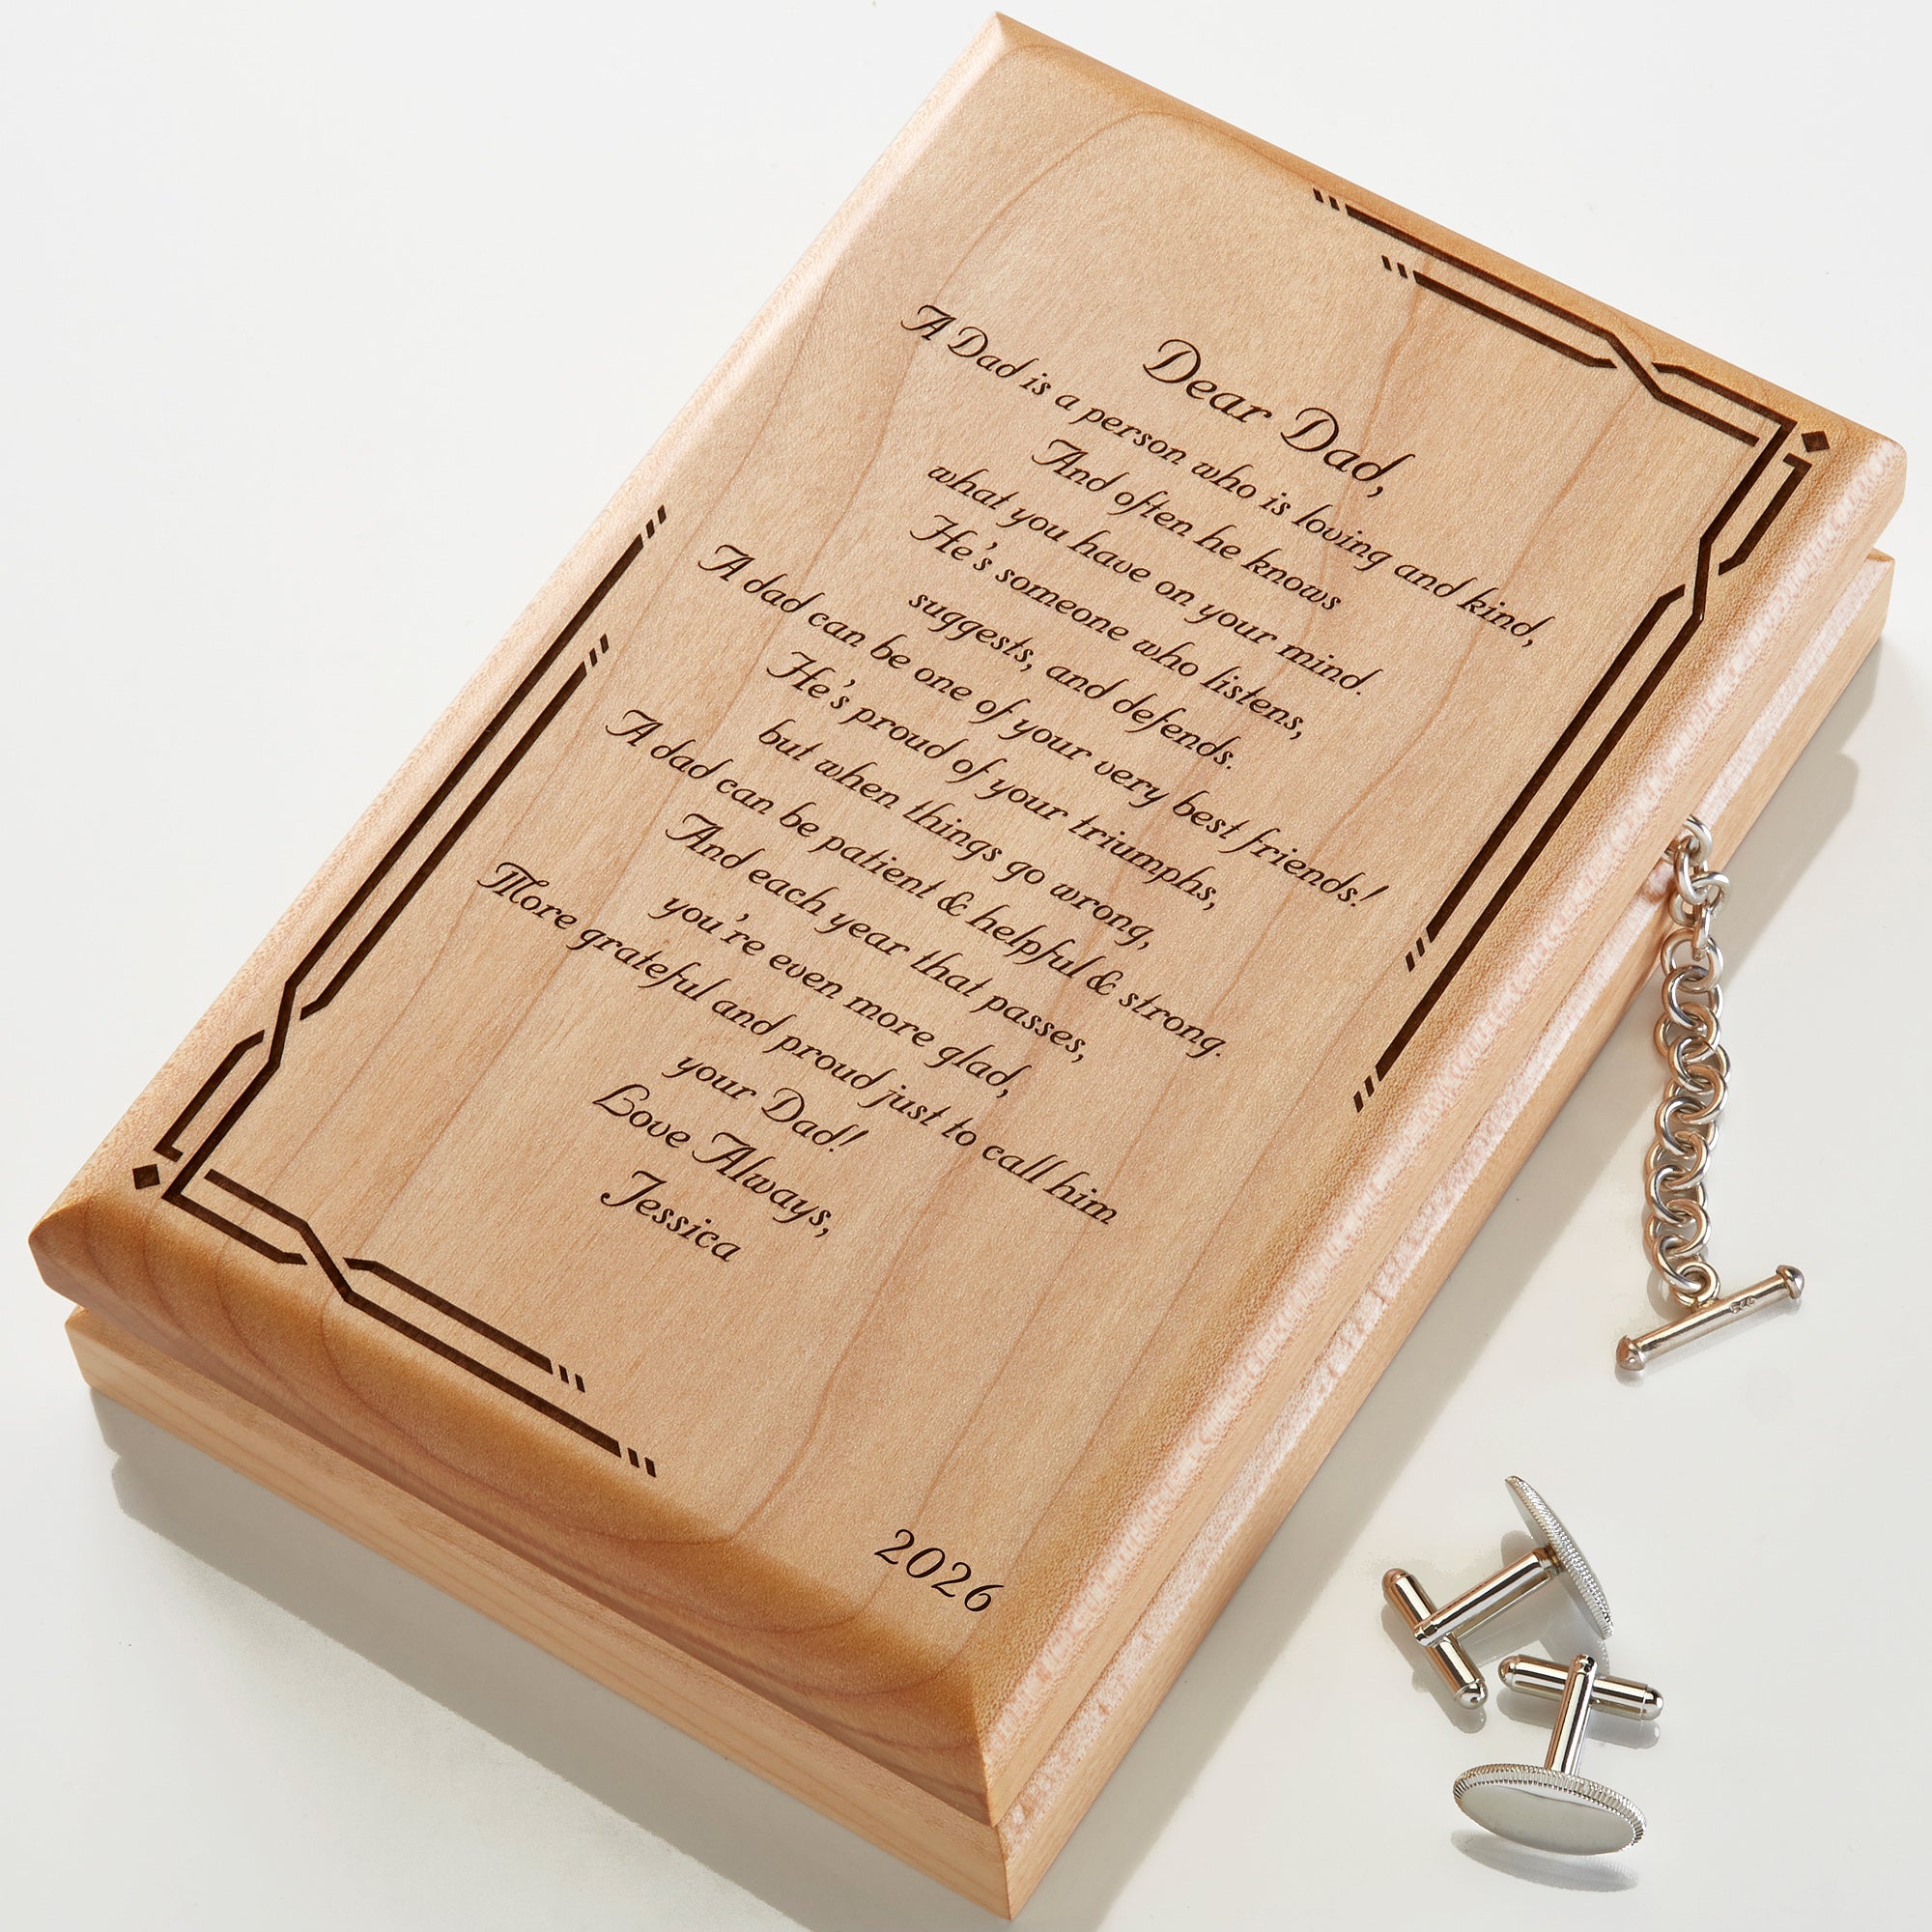 Dear Dad,
A Dad is a person who is loving and kind,
And often he knows
what you have on your mind.
He's someone who listens,
suggests, and defends.
A dad can be one of your very best friends!
He's proud of your triumphs,
but when things go wrong,
A dad can be patient & helpful & strong.
And each year that passes,
you're even more glad,
More grateful and proud just to call him
your Dad!
Love Always,
Jessica
2026